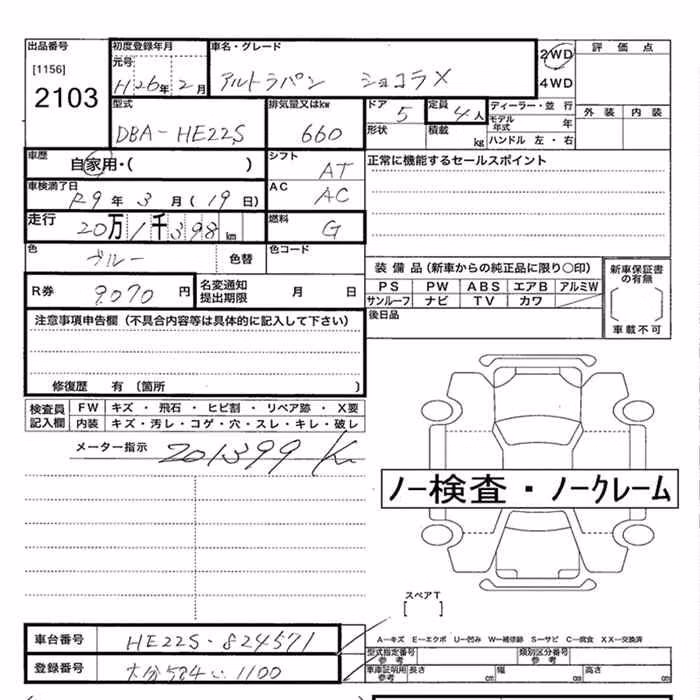 出品番号 初度登録年月 車名・グレード 2WD 評価点
[1156] 元号 H26年2月 アルトラパン ショコラX 4WD
2103 外装 内装
型式 排気量又はkw ドア 5 定員 4人 ディーラー・並行
DBA-HE22S 660 形状 積載 kg モデル年式 年
ハンドル 左・右
車歴 自家用・( ) シフト AT 正常に機能するセールスポイント
車検満了日 R9年3月(19日) AC AC
走行 20万1千398km 燃料 G
色 ブルー 色替 色コード
装備品(新車からの純正品に限り○印) 新車保証書の有無
R券 9,070円 名変通知提出期限 月 日 PS PW ABS エアB アルミW
サンルーフ ナビ TV カワ
車載不可
注意事項申告欄(不具合内容等は具体的に記入して下さい) 後日品
修復歴 有〔箇所 〕
検査員記入欄 FW キズ・飛石・ヒビ割・リペア跡・X要
内装 キズ・汚レ・コゲ・穴・スレ・キレ・破レ
メーター指示 201399 K
ノー検査・ノークレーム
スペアT
[ ]
A−キズ E−エクボ U−凹み W−補修跡 S−サビ C−腐食 XX−交換済
車台番号 HE22S-824571 型式指定番号 参考 類別区分番号 参考
登録番号 大分584い1100 車庫証明用参考 長さ cm 幅 cm 高さ cm